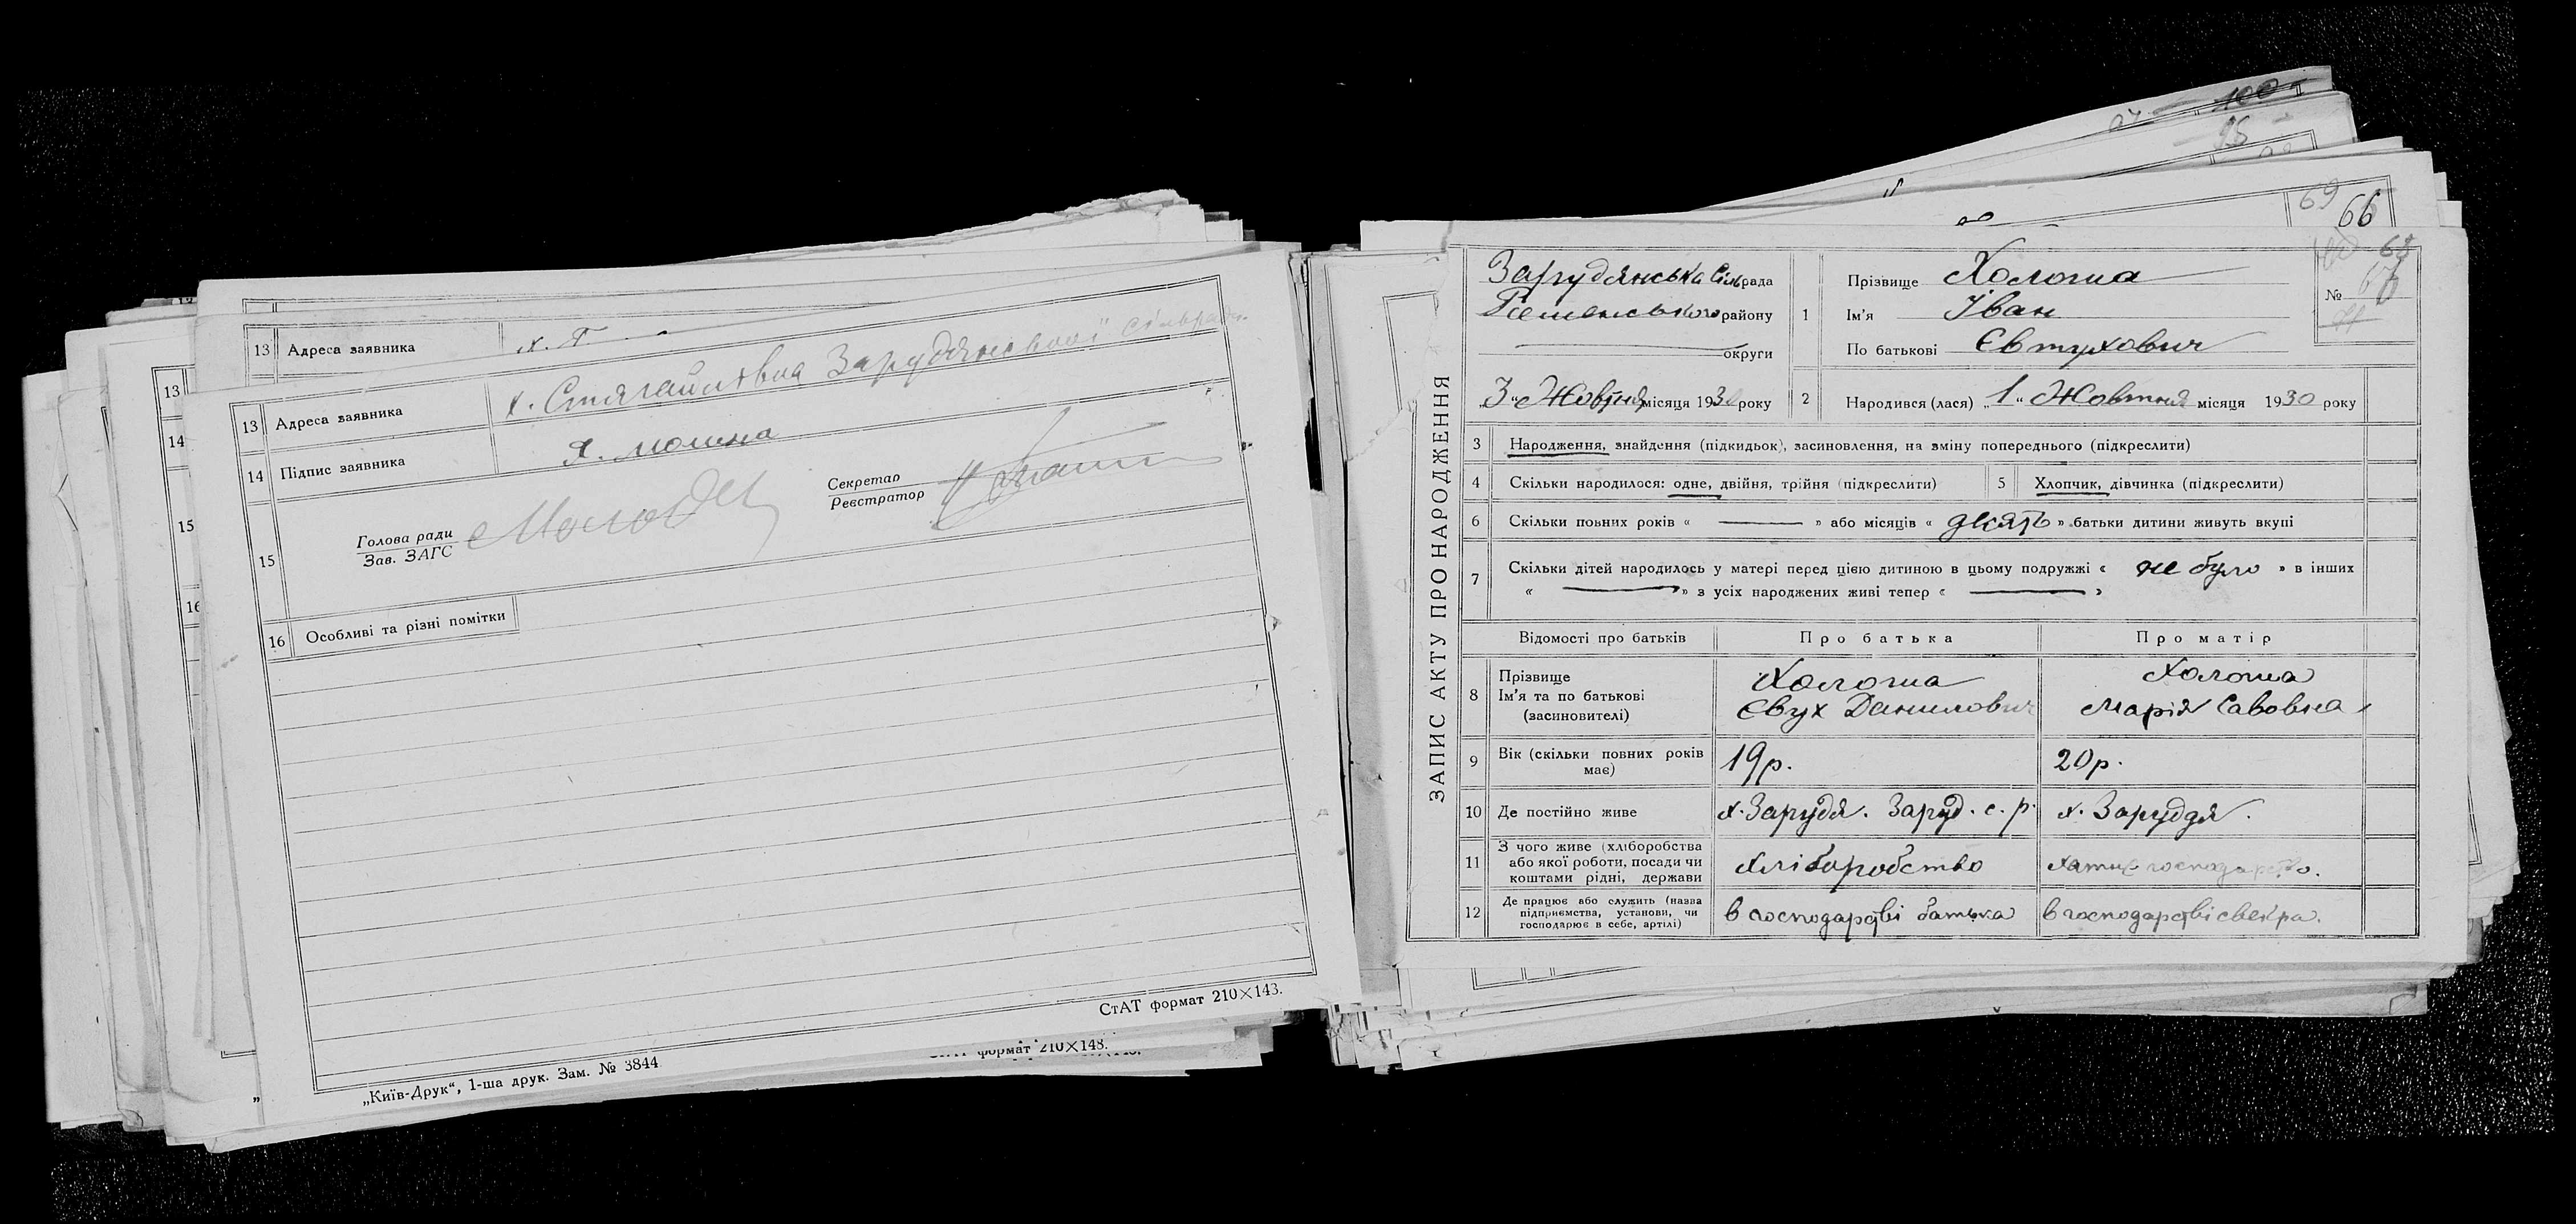 13 Адреса заявника х. Г
13 Адреса заявника х. Стягайлівка Зарудянської сільради
14 Підпис заявника Я. мошна
15 Голова ради
Зав. ЗАГС
Секретар
Реєстратор
16 Особливі та різні помітки
СтАТ формат 210×143.
„Київ-Друк“, 1-ша друк. Зам. № 3844
формат 210×148.
13
14
15
16
100
95
69
66
ЗАПИС АКТУ ПРО НАРОДЖЕННЯ
Зарудянська Сільрада
Роменського району
округи
„3“ Жовтня місяця 1930 року
1 Прізвище Холоша
Ім'я Іван
По батькові Євтухович
68
№ 67
2 Народився (лася) „1“ Жовтня місяця 1930 року
3 Народження, знайдення (підкидьок), засиновлення, на зміну попереднього (підкреслити)
4 Скільки народилося: одне, двійня, трійня (підкреслити) 5 Хлопчик, дівчинка (підкреслити)
6 Скільки повних років « — » або місяців « десять » батьки дитини живуть вкупі
7 Скільки дітей народилось у матері перед цією дитиною в цьому подружжі « не було » в інших
« — » з усіх народжених живі тепер « — »
Відомості про батьків Про батька Про матір
8 Прізвище
Ім'я та по батькові
(засиновителі)
Холоша
Євух Данилович
Холоша
Марія Савовна
9 Вік (скільки повних років
має)
19 р.
20 р.
10 Де постійно живе х. Заруддя. Заруд. с. р. х. Заруддя.
11 З чого живе (хліборобства
або якої роботи, посади чи
коштами рідні, держави
хліборобство
хатнє господарство.
12 Де працює або служить (назва
підприємства, установи, чи
господарює в себе, артілі)
в господарстві батька
в господарстві свекра.